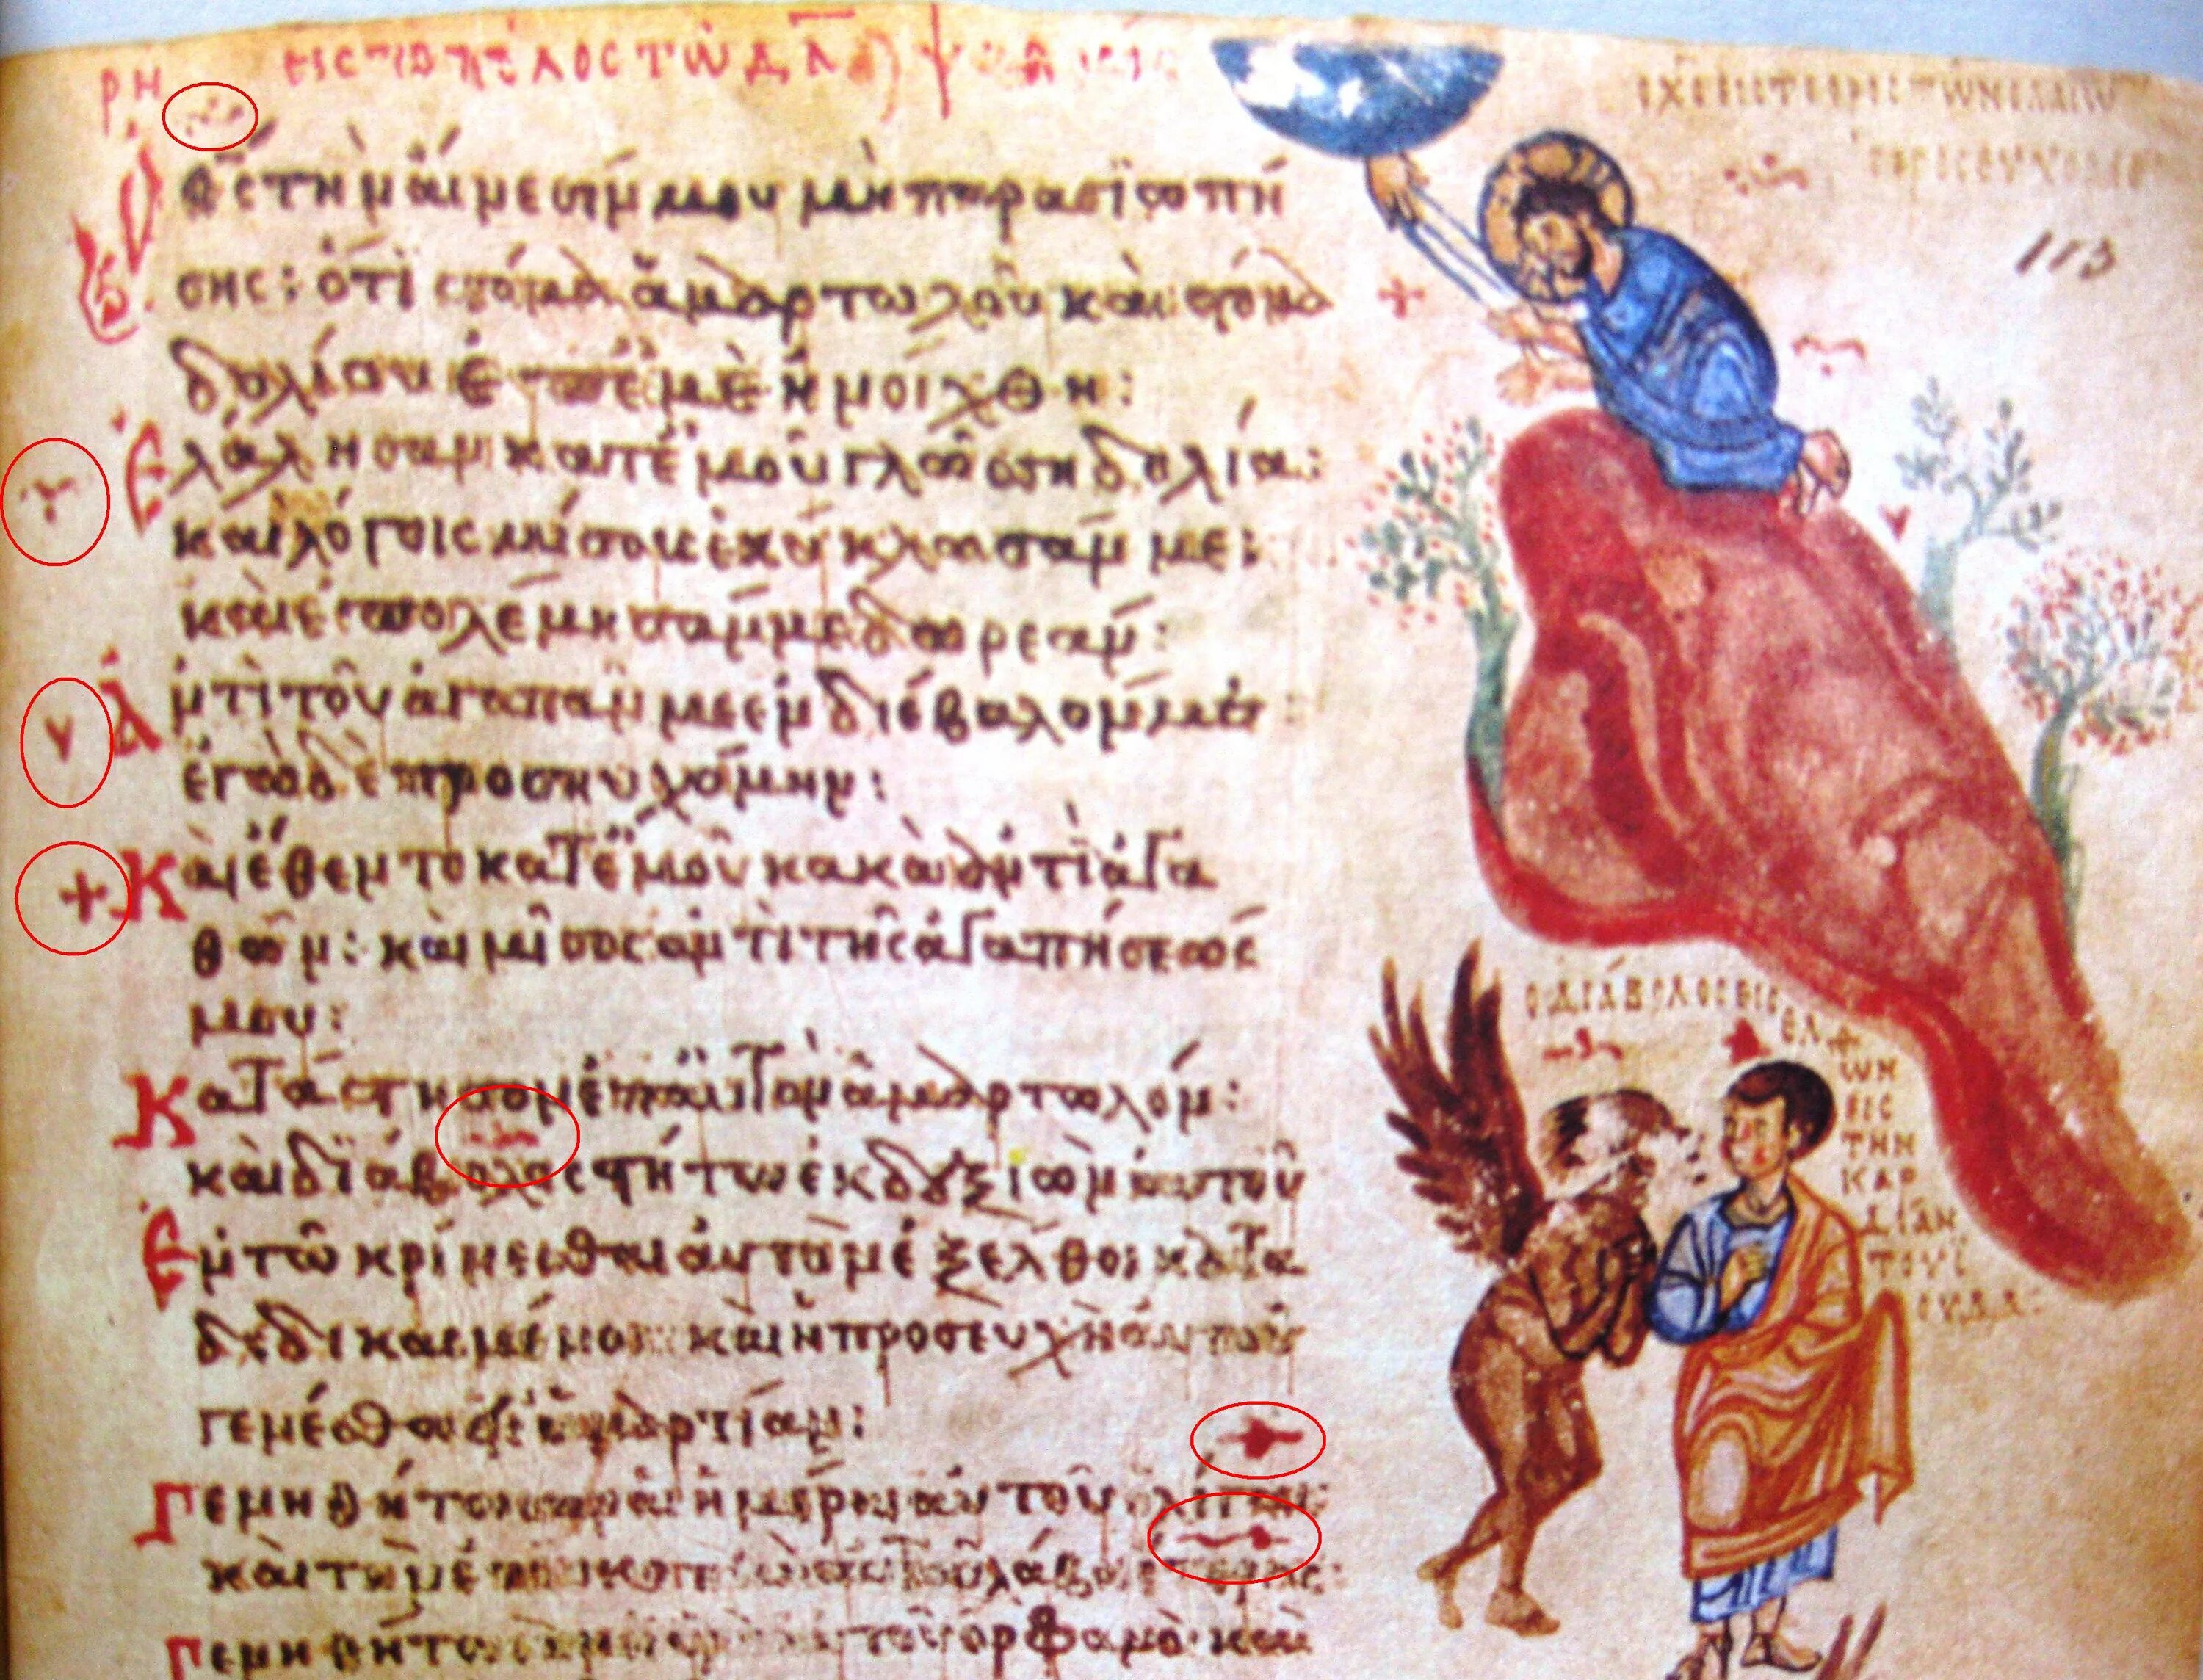 ΡΗ
εἰς τὸ τέλος τῶ δαδ ψαλμός
Ὁ θς τὴν αἴνεσίν μου μὴ παρασιωπή
σης: ὅτι στόμα ἁμαρτωλοῦ καὶ στόμα
δολίου ἐπ ἐμὲ ἠνοίχθη:
Ἐλάλησαν κατ ἐμοῦ γλώσση δολία:
καὶ λόγοις μίσους ἐκύκλωσάν με:
καὶ ἐπολέμησάν με δωρεάν:
Ἀντὶ τοῦ ἀγαπᾶν με ἐνδιέβαλόν με:
ἐγὼ δὲ προσηυχόμην:
Καὶ ἔθεντο κατ ἐμοῦ κακὰ ἀντὶ ἀγα
θῶν: καὶ μῖσος ἀντὶ τῆς ἀγαπήσεώς
μου:
Κατάστησον ἐπ αὐτὸν ἁμαρτωλόν:
καὶ διάβολος στήτω ἐκ δεξιῶν αὐτοῦ
Ἐν τῶ κρίνεσθαι αὐτὸν ἐξέλθοι κατα
δεδικασμένος: καὶ ἡ προσευχὴ αὐτοῦ
γενέσθω εἰς ἁμαρτίαν:
Γενηθήτωσαν αἱ ἡμέραι αὐτοῦ ὀλίγαι:
καὶ τὴν ἐπισκοπὴν αὐτοῦ λάβοι ἕτερος:
Γενηθήτωσαν οἱ υἱοὶ αὐτοῦ ὀρφανοὶ καὶ
Ο ΧΣ ΕΙΣ ΤΟ ΟΡΟΣ ΤΩΝ ΕΛΑΙΩΝ
113
Ο ΔΙΑΒΟΛΟΣ ΕΙΣ
ΕΛΘ
ΩΝ
ΕΙΣ
ΤΗΝ
ΚΑΡ
ΔΙΑΝ
ΤΟΥ Ι
ΟΥΔΑ: